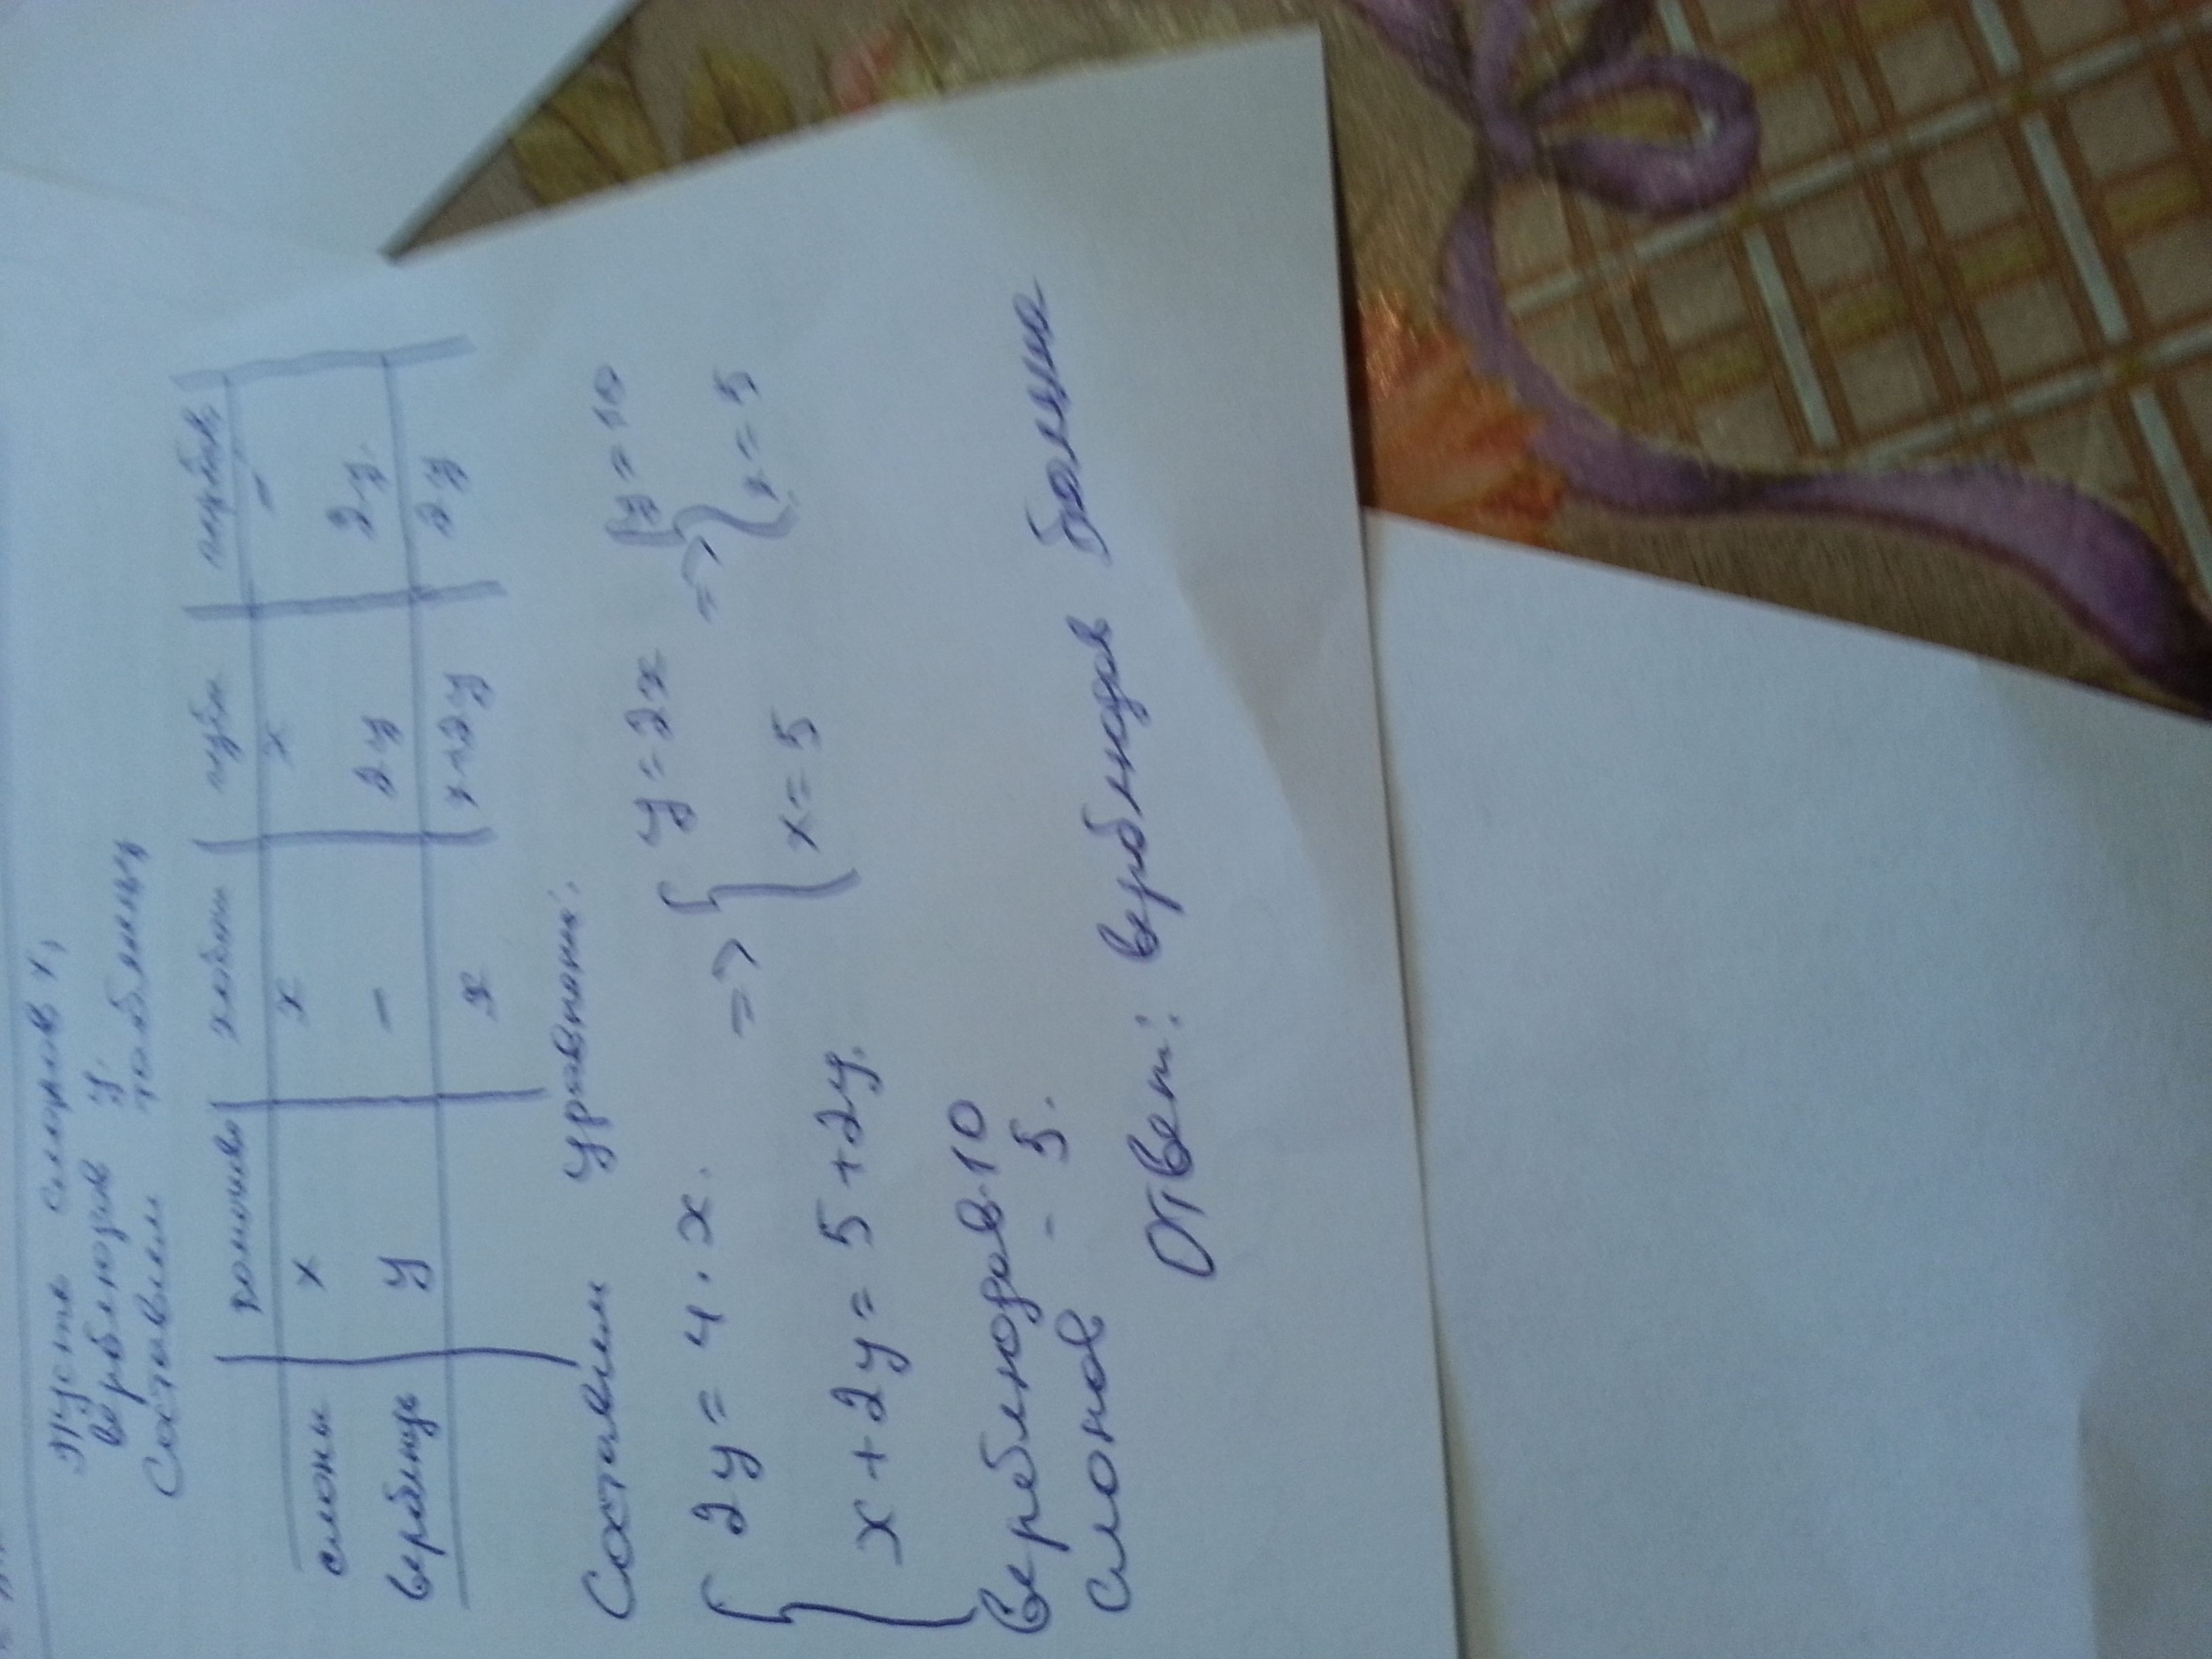 Пусть слонов x,
верблюдов y.
Составим таблицу
хоботы горбов
слоны x x x -
верблюды y - 2y 2y.
x x+2y 2y
Составим уравнени:
{ 2y = 4 · x. => { y = 2x => { y = 10
x + 2y = 5 + 2y. x = 5 x = 5
Верблюдов - 10
Слонов - 5.
Ответ: верблюдов больше